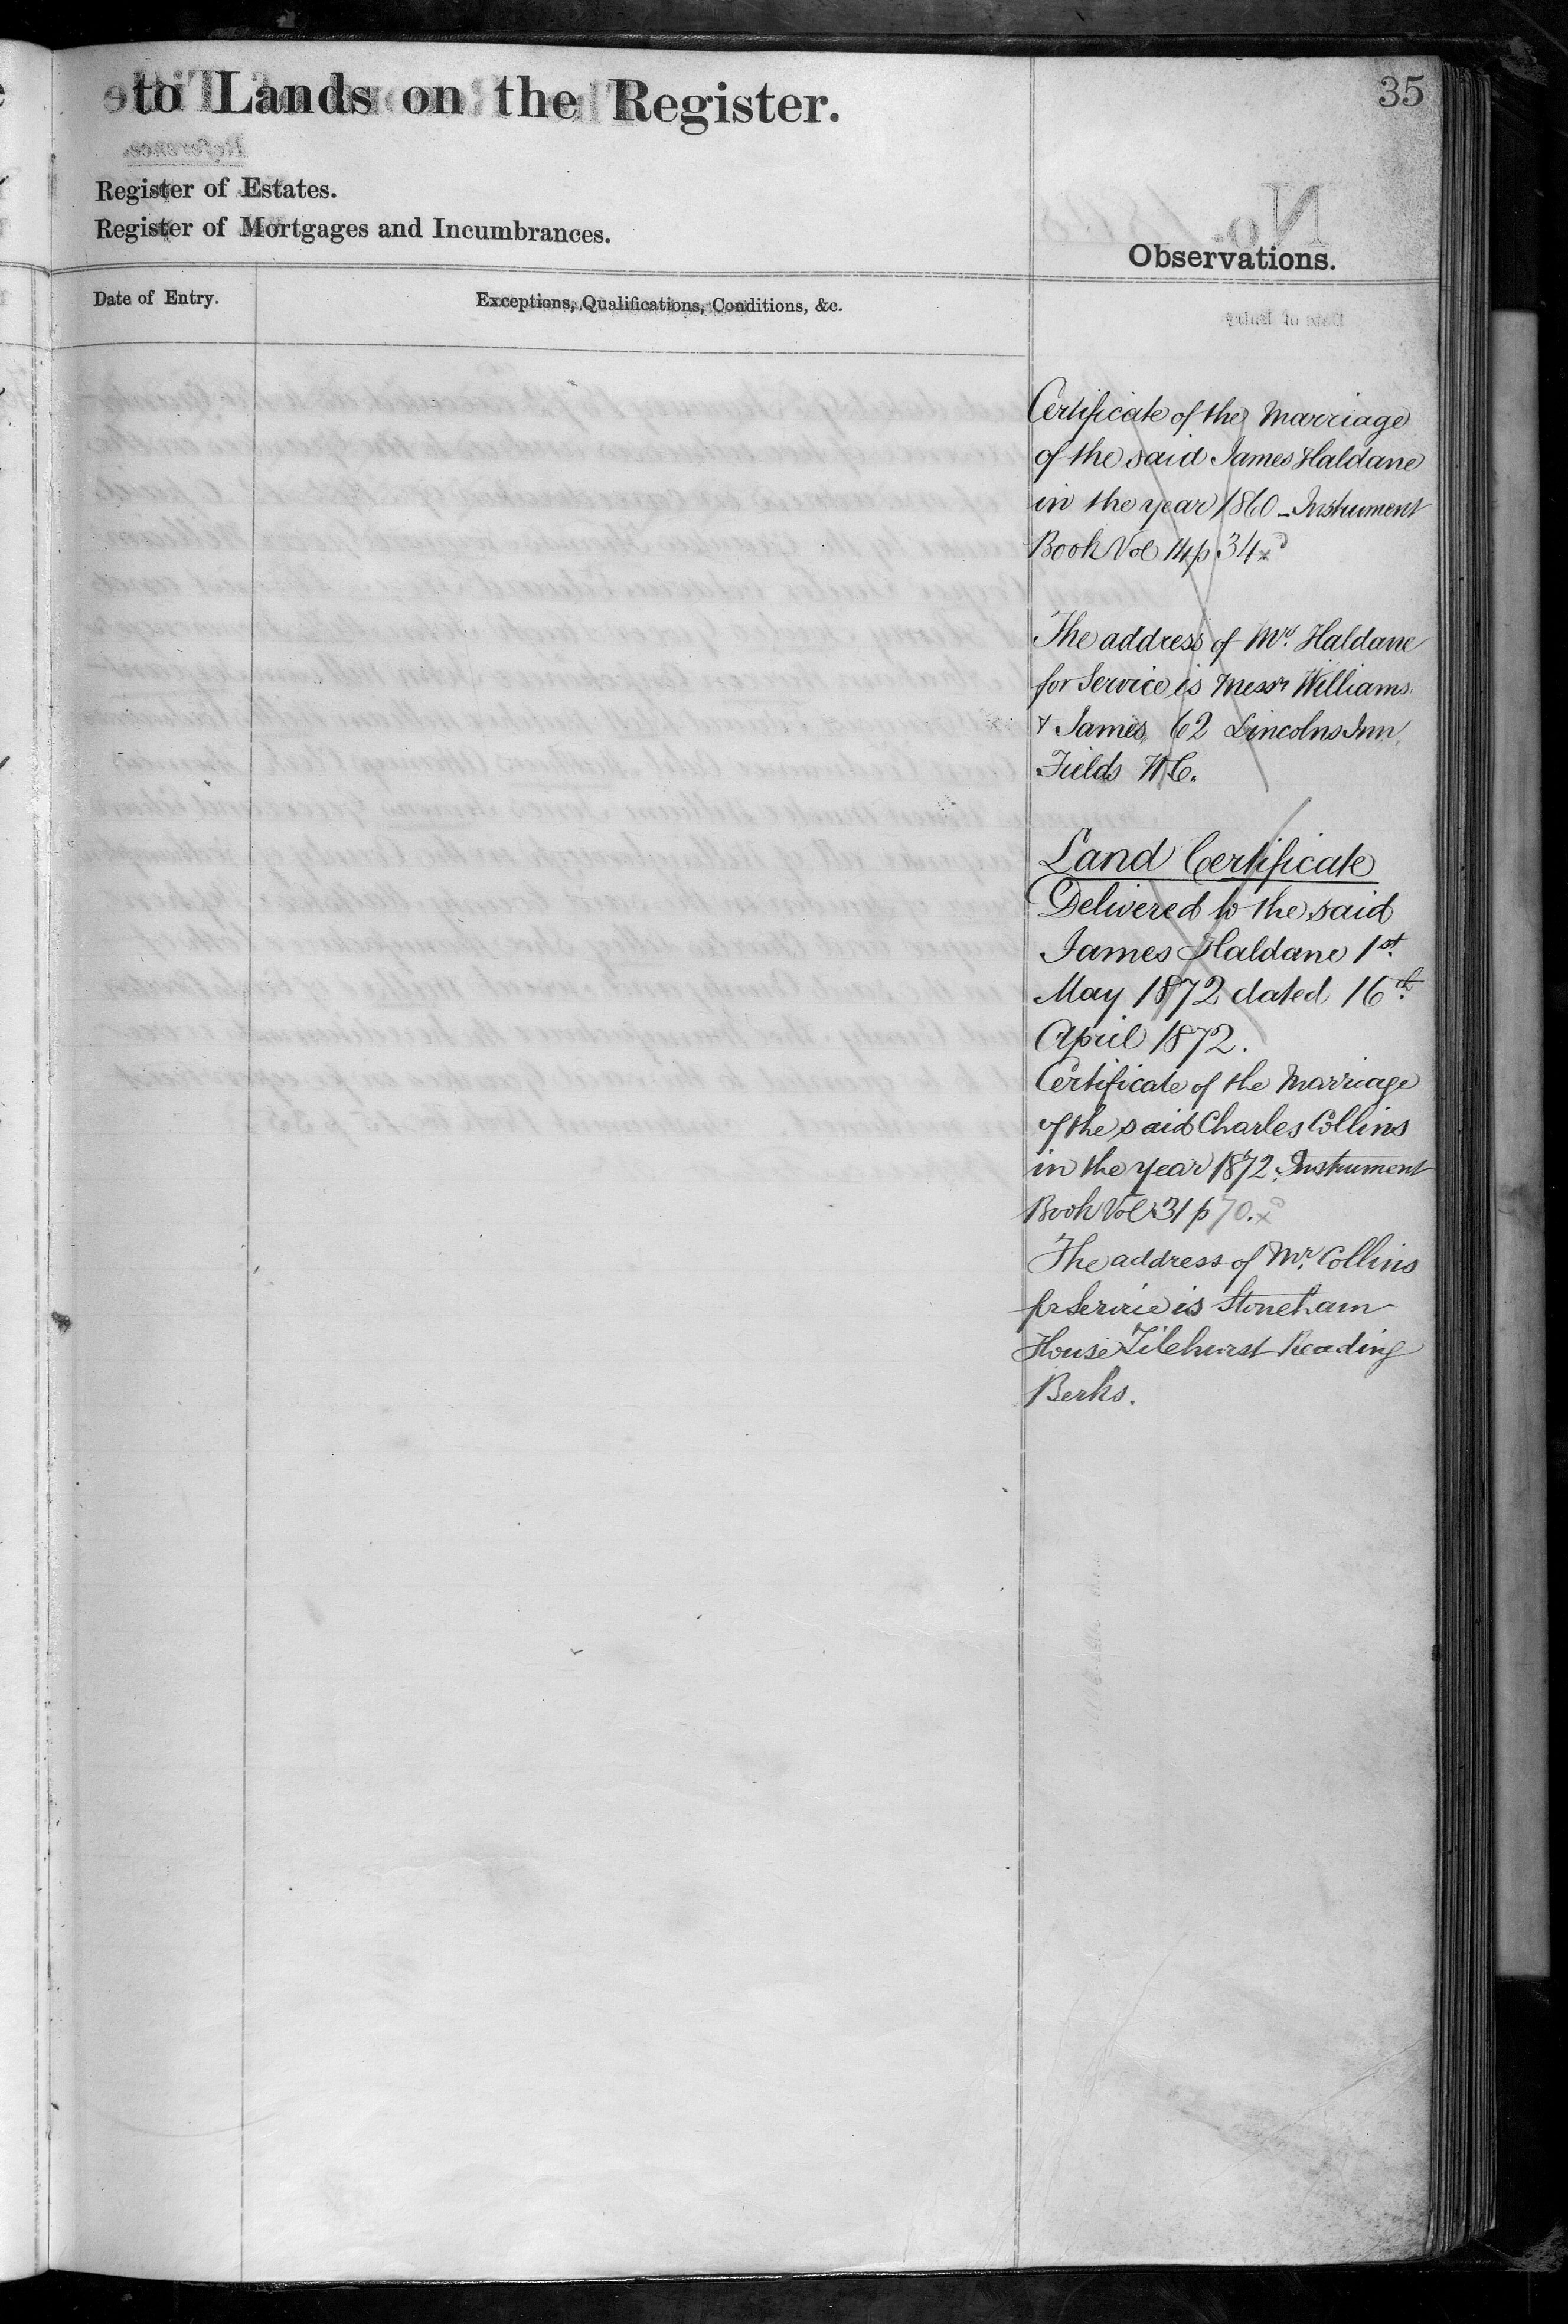 35
to Lands on the Register.
Register of Estates.
Register of Mortgages and Incumbrances.
Observations.
Date of Entry.
Exceptions, Qualifications, Conditions, &c.
Certificate of the Marriage
of the said James Haldane
in the year 1860 - Instrument
Book Vol 14 p. 34
The address of Mr. Haldane
for Service is Messrs Williams
& James 62 Lincolns Inn
Fields W.C.
Land Certificate
Delivered to the said
James Haldane 1st.
May 1872 dated 16th.
April 1872.
Certificate of the Marriage
of the said Charles Collins
in the year 1872. Instrument
Book Vol 31 p 70.
The address of Mr. Collins
for Service is Stoneham
House Tilehurst Reading
Berks.